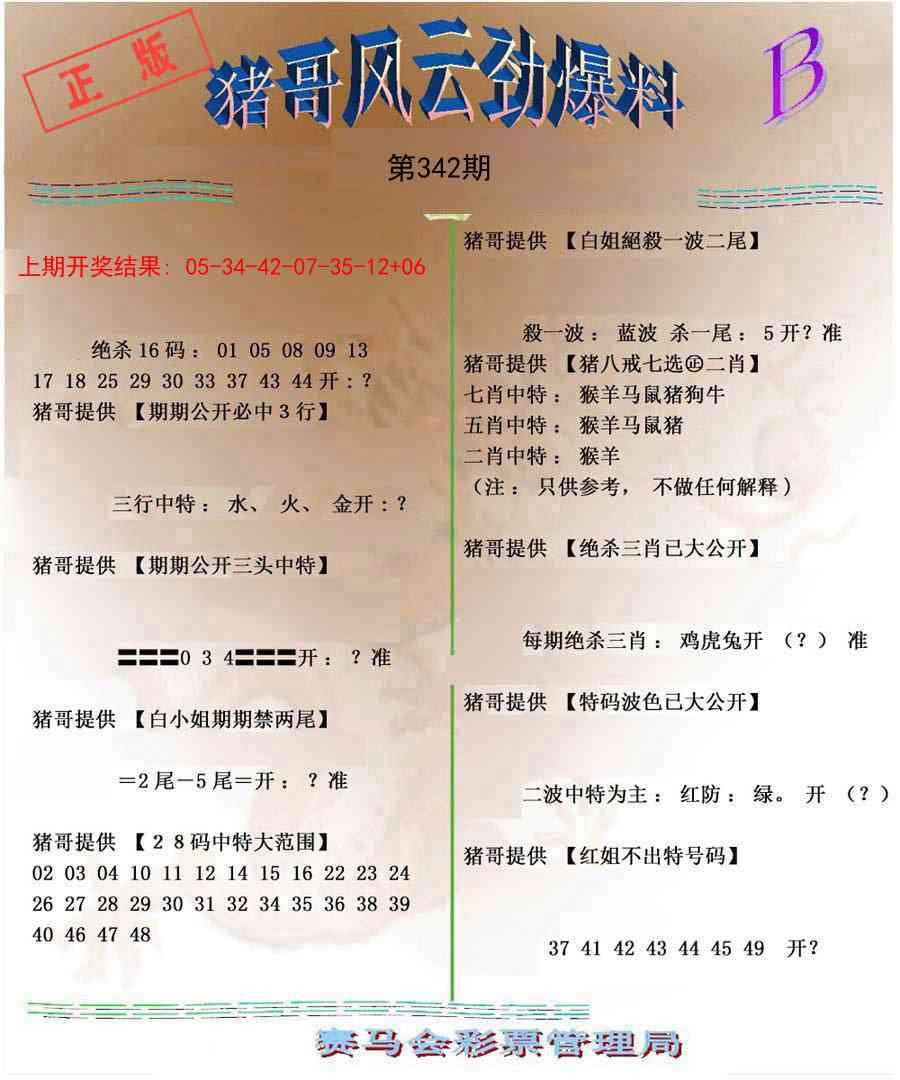 正版
猪哥风云劲爆料
B
第342期
上期开奖结果: 05-34-42-07-35-12+06
绝杀16码: 01 05 08 09 13
17 18 25 29 30 33 37 43 44开:?
猪哥提供 【期期公开必中3行】
三行中特: 水、 火、 金开:?
猪哥提供 【期期公开三头中特】
〓〓〓0 3 4〓〓〓开: ?准
猪哥提供 【白小姐期期禁两尾】
=2尾-5尾=开: ?准
猪哥提供 【28码中特大范围】
02 03 04 10 11 12 14 15 16 22 23 24
26 27 28 29 30 31 32 34 35 36 38 39
40 46 47 48
猪哥提供 【白姐絕殺一波二尾】
殺一波: 蓝波 杀一尾: 5开?准
猪哥提供 【猪八戒七选㊣二肖】
七肖中特: 猴羊马鼠猪狗牛
五肖中特: 猴羊马鼠猪
二肖中特: 猴羊
(注: 只供参考, 不做任何解释)
猪哥提供 【绝杀三肖已大公开】
每期绝杀三肖: 鸡虎兔开 (?) 准
猪哥提供 【特码波色已大公开】
二波中特为主: 红防: 绿。 开 (?)
猪哥提供 【红姐不出特号码】
37 41 42 43 44 45 49 开?
赛马会彩票管理局